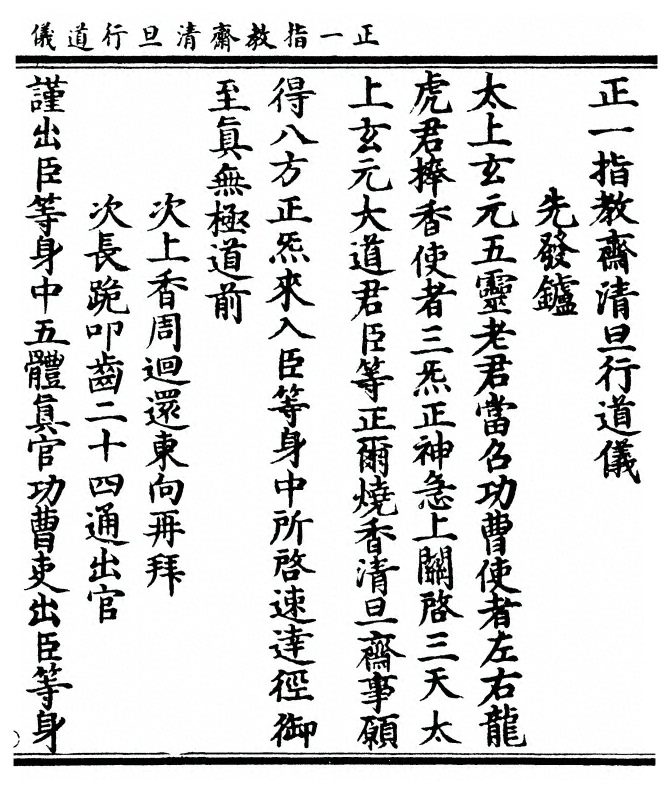 正一指教齋清旦行道儀
正一指教齋清旦行道儀
先發鑪
太上玄元五靈老君當召功曹使者左右龍
虎君捧香使者三炁正神急上關啓三天太
上玄元大道君臣等正爾燒香清旦齋事願
得八方正炁來入臣等身中所啓速達徑御
至眞無極道前
次上香周迴還東向再拜
次長跪叩齒二十四通出官
謹出臣等身中五體眞官功曹吏出臣等身